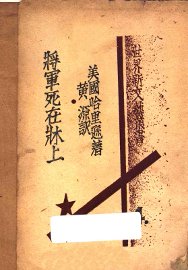 世界新文藝叢書
美國哈里遜著
黃源譯
將軍死在牀上